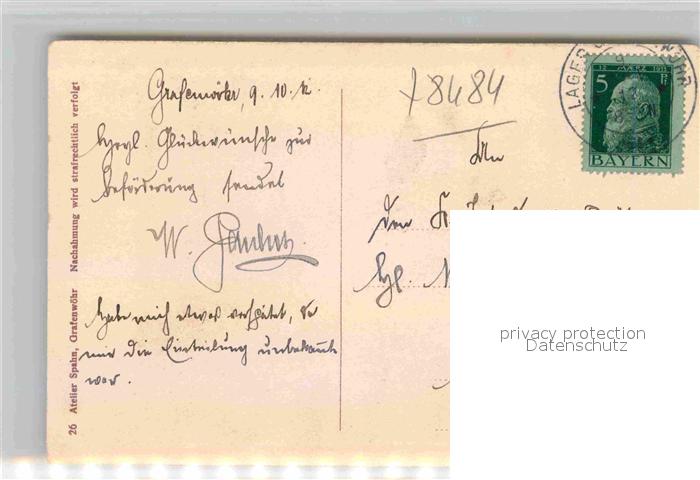 26 Atelier Spahn, Grafenwöhr Nachahmung wird strafrechtlich verfolgt
Grafenwöhr, 9. 10.
Herzl. Glückwünsche zur
Beförderung sendet
W.
Habe mich etwas verspätet, da
mir die Einteilung unbekannt
war.
78484
An
den
Kgl.
LAGER
12 MÄRZ 1911
5 Pf
BAYERN
privacy protection
Datenschutz